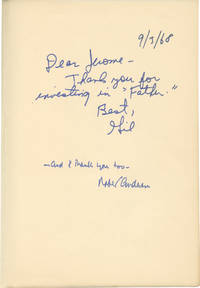 9/3/68
Dear Jerome -
Thank you for
investing in "Father."
Best,
Gil
- and I thank you too -
Robert Anderson